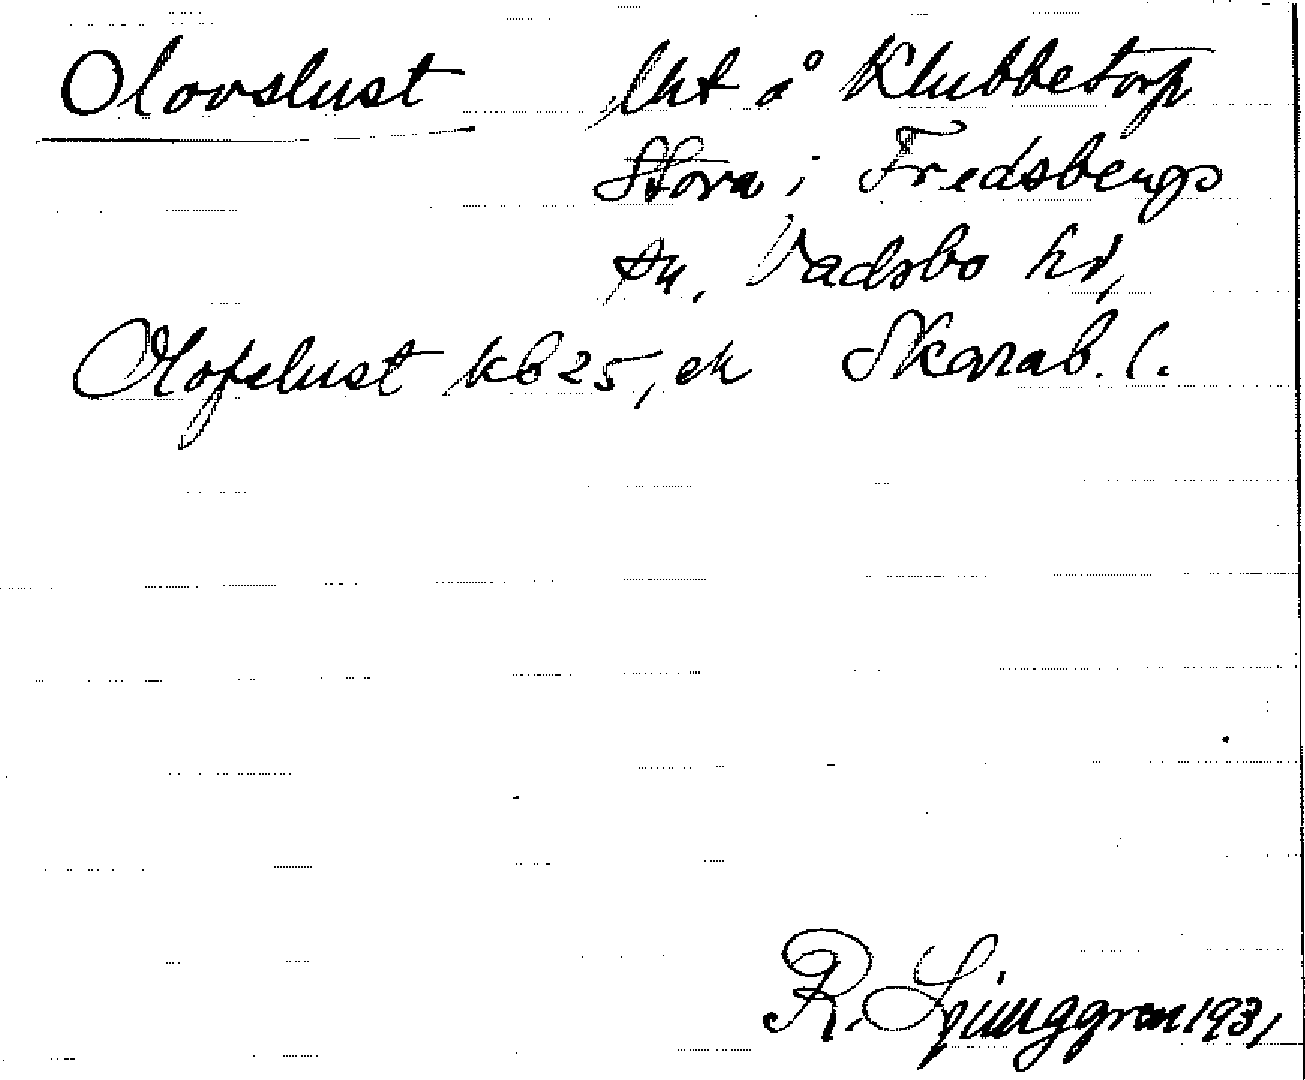 Olovslust lht å Klubbetorp
Stora i Fredsbergs
sn, Vadsbo hd,
Olofslust kb 25, ek Skarab. l.
R. Ljunggren 1931